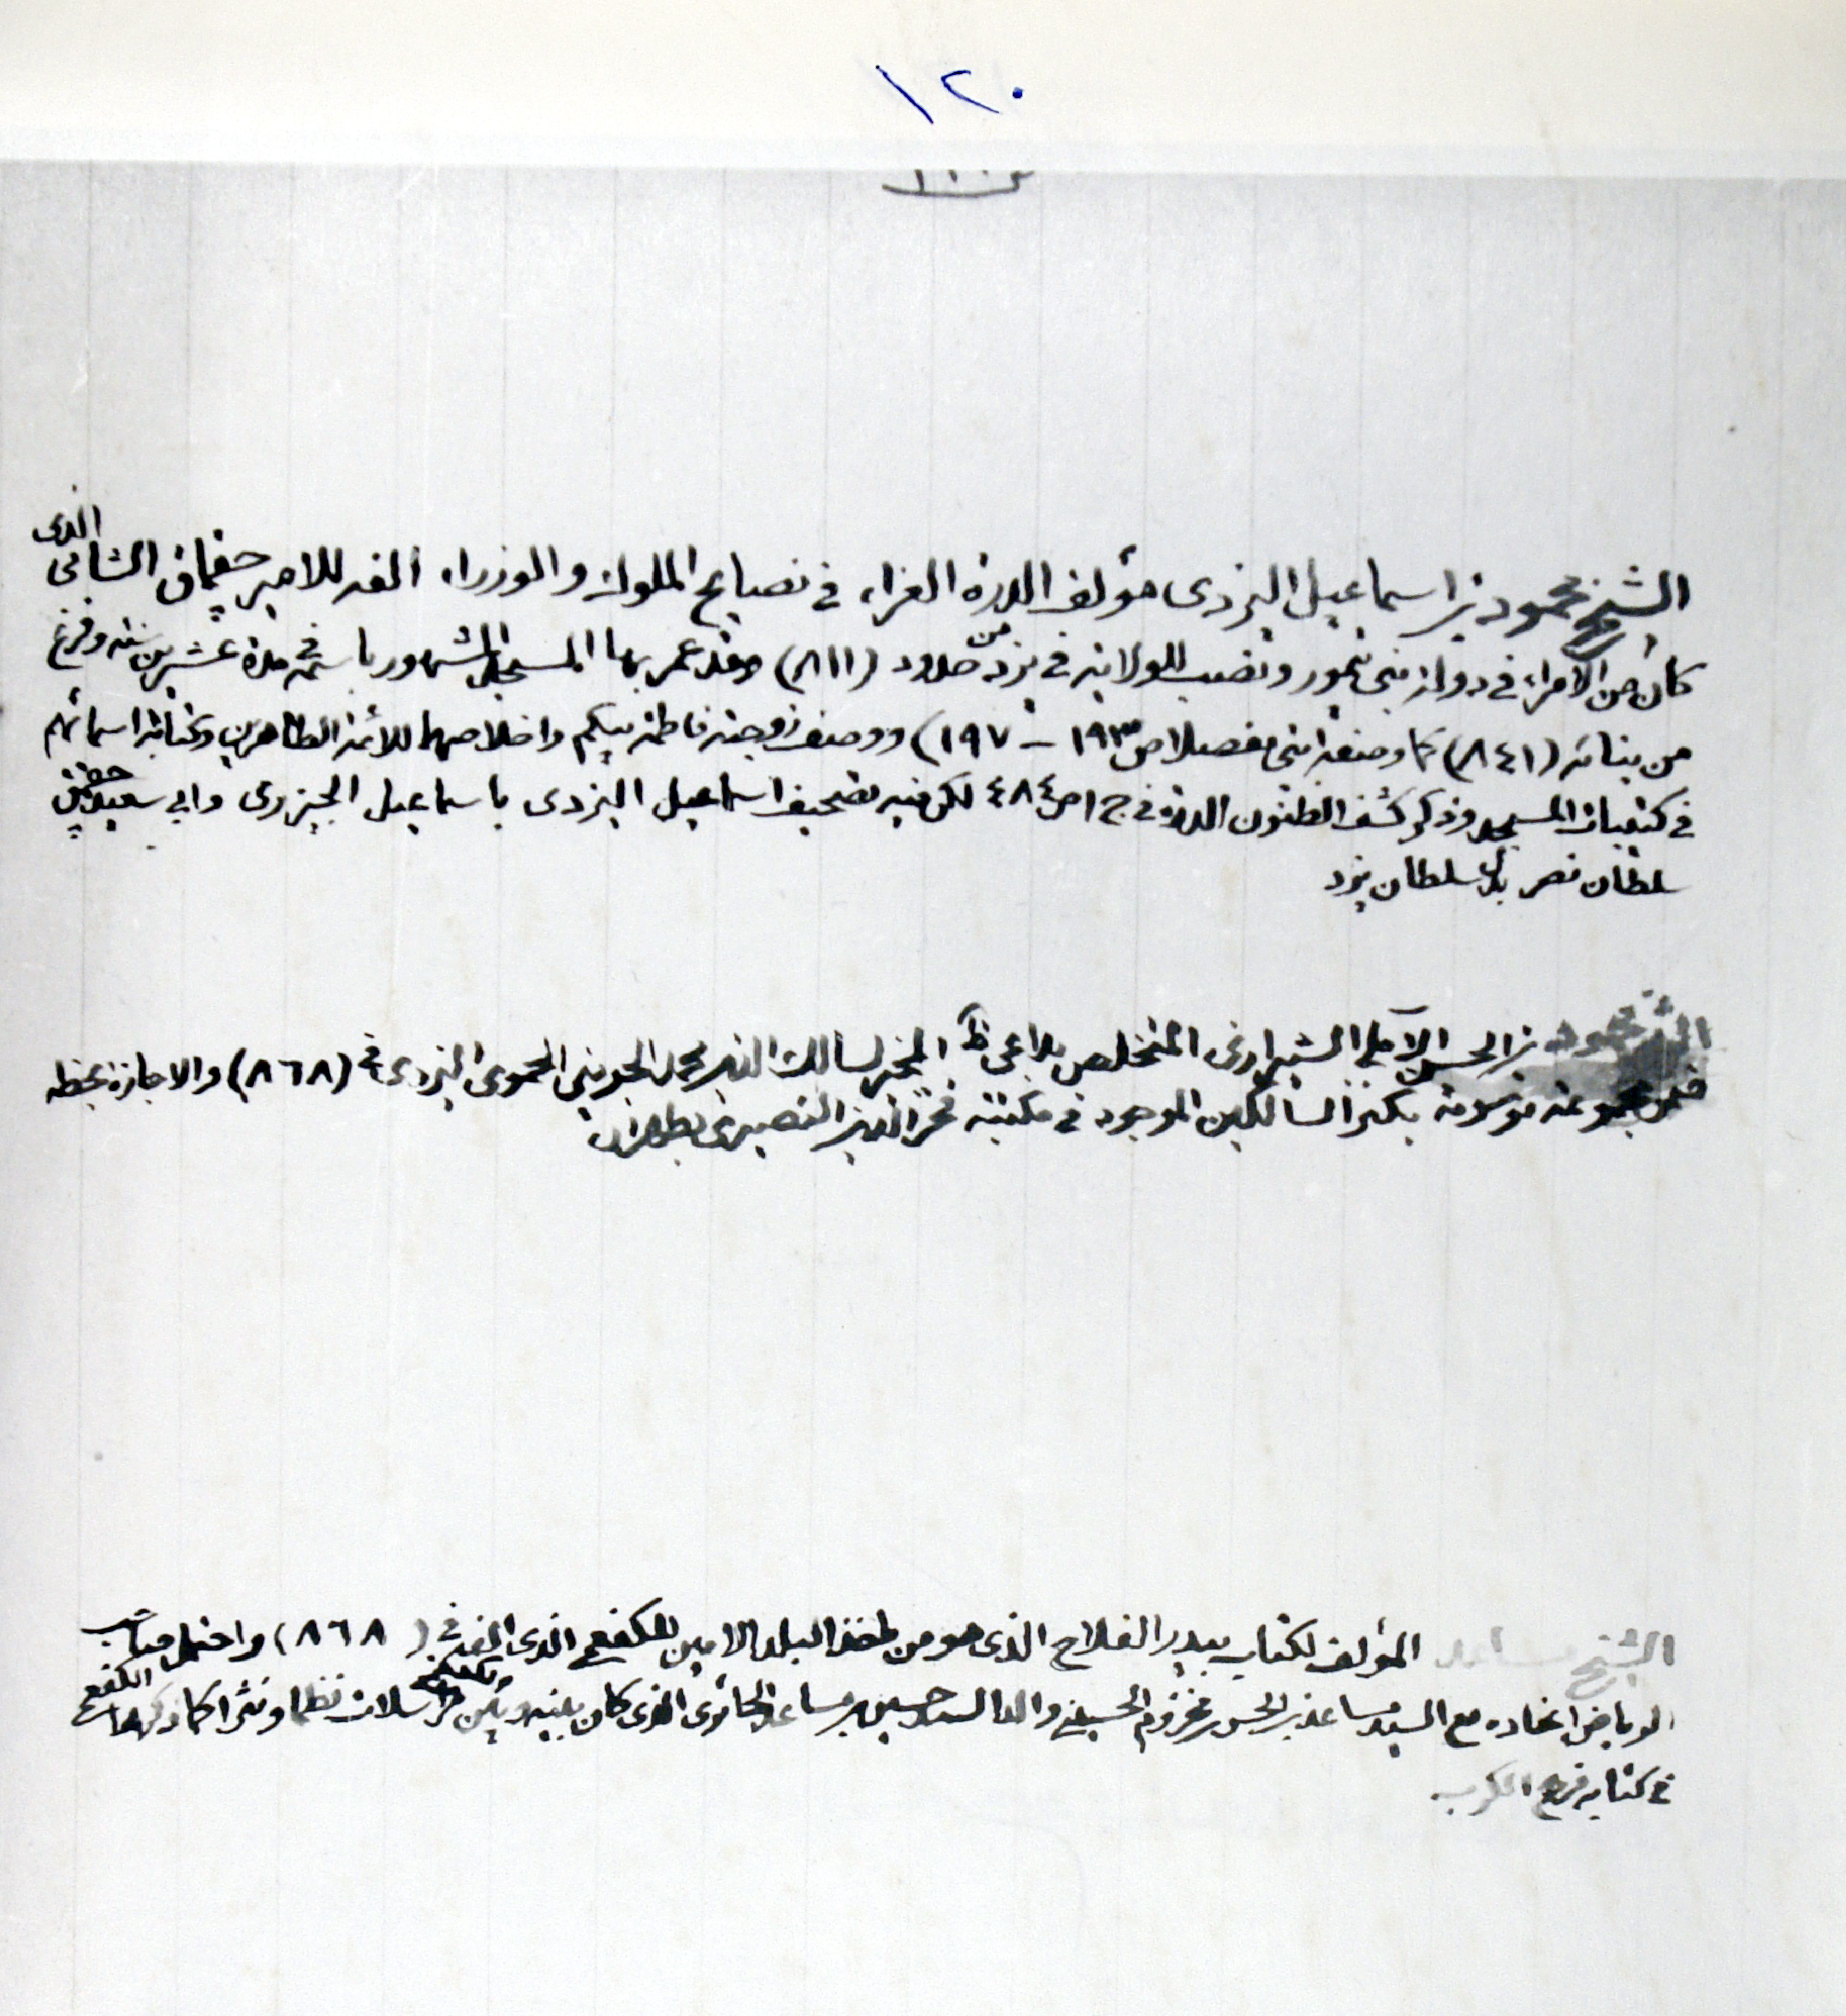 ١٢٠
الشيخ محمود بن اسماعيل اليزدى مؤلف الدرة الغراء في نصايح الملوك والوزراء الفه للامير جقماق الشامى الذى
كان من الامراء في دولة بنى تيمور ونصب للولاية في يزد من حدود (٨١١) وقد عمر بها المسجد المشهور باسمه في مدة عشرين سنة وفرغ
من بنائه (٨٤١) كما وصفه ابنى مفصلا ص ١٩٣ - ١٩٧) ووصف زوجته فاطمة بيكم واخلاصهما للائمة الطاهرين وكتابة اسمائهم
في كتيبات المسجد وذكر كشف الظنون الدرة في ج ١ ص ٤٨٤ لكن فيه تصحيف اسماعيل اليزدى باسماعيل الجيزرى وابى سعيد جقمق
سلطان مصر بدل سلطان يزد
الشيخ محمود بن الحسن الآملى الشيرازى المتخلص بداعى المجيز لسالك الدين محمد الجوينى الحموى اليزدى في (٨٦٨) والاجازة بخطه
ضمن مجموعة موسومة بكنز السالكين الموجود في مكتبة فخر الدين النصيرى بطهران
الشيخ مساعد المؤلف لكتاب بيدر الفلاح الذى هو من مآخذ البلد الامين للكفعمى الذى الفه في (٨٦٨) واحتمل صاحب
الرياض اتحاده مع السيد مساعد بن الحسن بن مخزوم الحسينى والد السيد حسين بن مساعد الحائرى الذى كان بينه وبين الكفعمى مراسلات نظما ونثرا كما ذكرها الكفعمى
في كتابه فرج الكرب